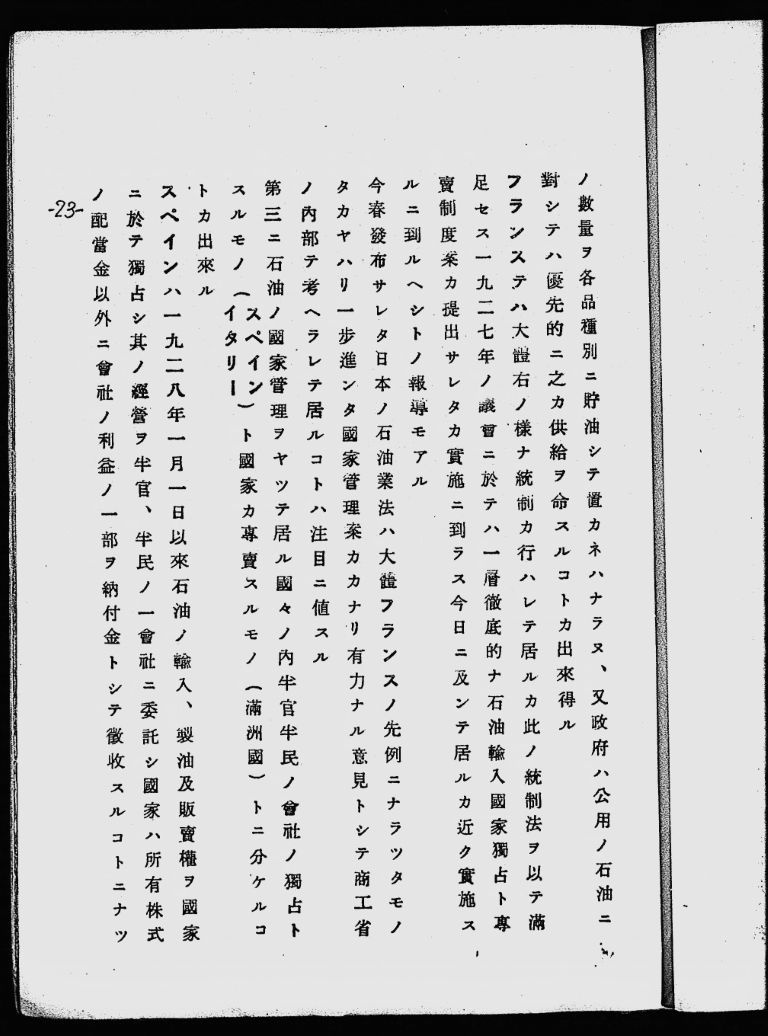 ノ數量ヲ各品種別ニ貯油シテ置カネハナラヌ、又政府ハ公用ノ石油ニ
對シテハ優先的ニ之カ供給ヲ命スルコトカ出來得ル
フランステハ大體右ノ樣ナ統制カ行ハレテ居ルカ此ノ統制法ヲ以テ滿
足セス一九二七年ノ議會ニ於テハ一層徹底的ナ石油輸入國家獨占ト專
賣制度案カ提出サレタカ實施ニ到ラス今日ニ及ンテ居ルカ近ク實施ス
ルニ到ルヘシトノ報導モアル
今春發布サレタ日本ノ石油業法ハ大體フランスノ先例ニナラツタモノ
タカヤハリ一步進ンタ國家管理案カカナリ有力ナル意見トシテ商工省
ノ內部テ考ヘラレテ居ルコトハ注目ニ値スル
第三ニ石油ノ國家管理ヲヤツテ居ル國々ノ內半官半民ノ會社ノ獨占ト
スルモノ(スペイン
イタリー)ト國家カ專賣スルモノ(滿洲國)トニ分ケルコ
トカ出來ル
スペインハ一九二八年一月一日以來石油ノ輸入、製油及販賣權ヲ國家
ニ於テ獨占シ其ノ經營ヲ半官、半民ノ一會社ニ委託シ國家ハ所有株式
ノ配當金以外ニ會社ノ利益ノ一部ヲ納付金トシテ徵收スルコトニナツ
-23-